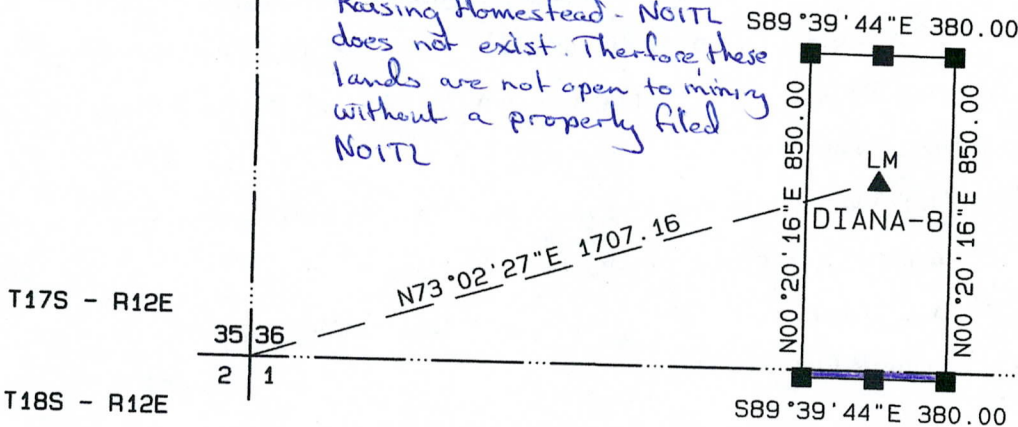 Raising Homestead - NOITL
does not exist. Therfore, these
lands are not open to mining
without a properly filed
NOITL
S89°39'44"E 380.00
N00°20'16"E 850.00
N00°20'16"E 850.00
LM
DIANA-8
N73°02'27"E 1707.16
T17S - R12E
35 36
2 1
T18S - R12E
S89°39'44"E 380.00